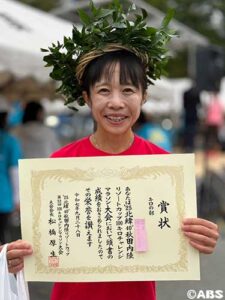 賞状
キロの部
あなたは'25北緯40°秋田内陸
リゾートカップ100キロチャレンジ
マラソン大会において頭書の
成績をおさめられましたので
その栄誉を讃えます
令和七年九月二十八日
'25北緯40°秋田内陸リゾートカップ
100キロチャレンジマラソン大会
大会会長 松橋厚生
©ABS